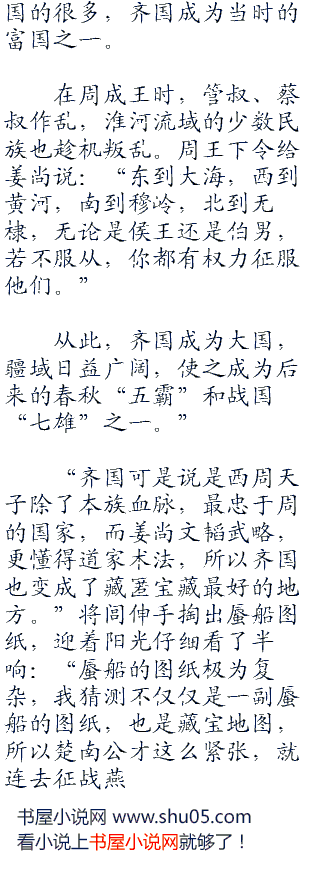 国的很多，齐国成为当时的
富国之一。
在周成王时，管叔、蔡
叔作乱，淮河流域的少数民
族也趁机叛乱。周王下令给
姜尚说：“东到大海，西到
黄河，南到穆岭，北到无
棣，无论是侯王还是伯男，
若不服从，你都有权力征服
他们。”
从此，齐国成为大国，
疆域日益广阔，使之成为后
来的春秋“五霸”和战国
“七雄”之一。”
“齐国可是说是西周天
子除了本族血脉，最忠于周
的国家，而姜尚文韬武略，
更懂得道家术法，所以齐国
也变成了藏匿宝藏最好的地
方。”将闾伸手掏出蜃船图
纸，迎着阳光仔细看了半
响：“蜃船的图纸极为复
杂，我猜测不仅仅是一副蜃
船的图纸，也是藏宝地图，
所以楚南公才这么紧张，就
连去征战燕
书屋小说网 www.shu05.com
看小说上书屋小说网就够了！